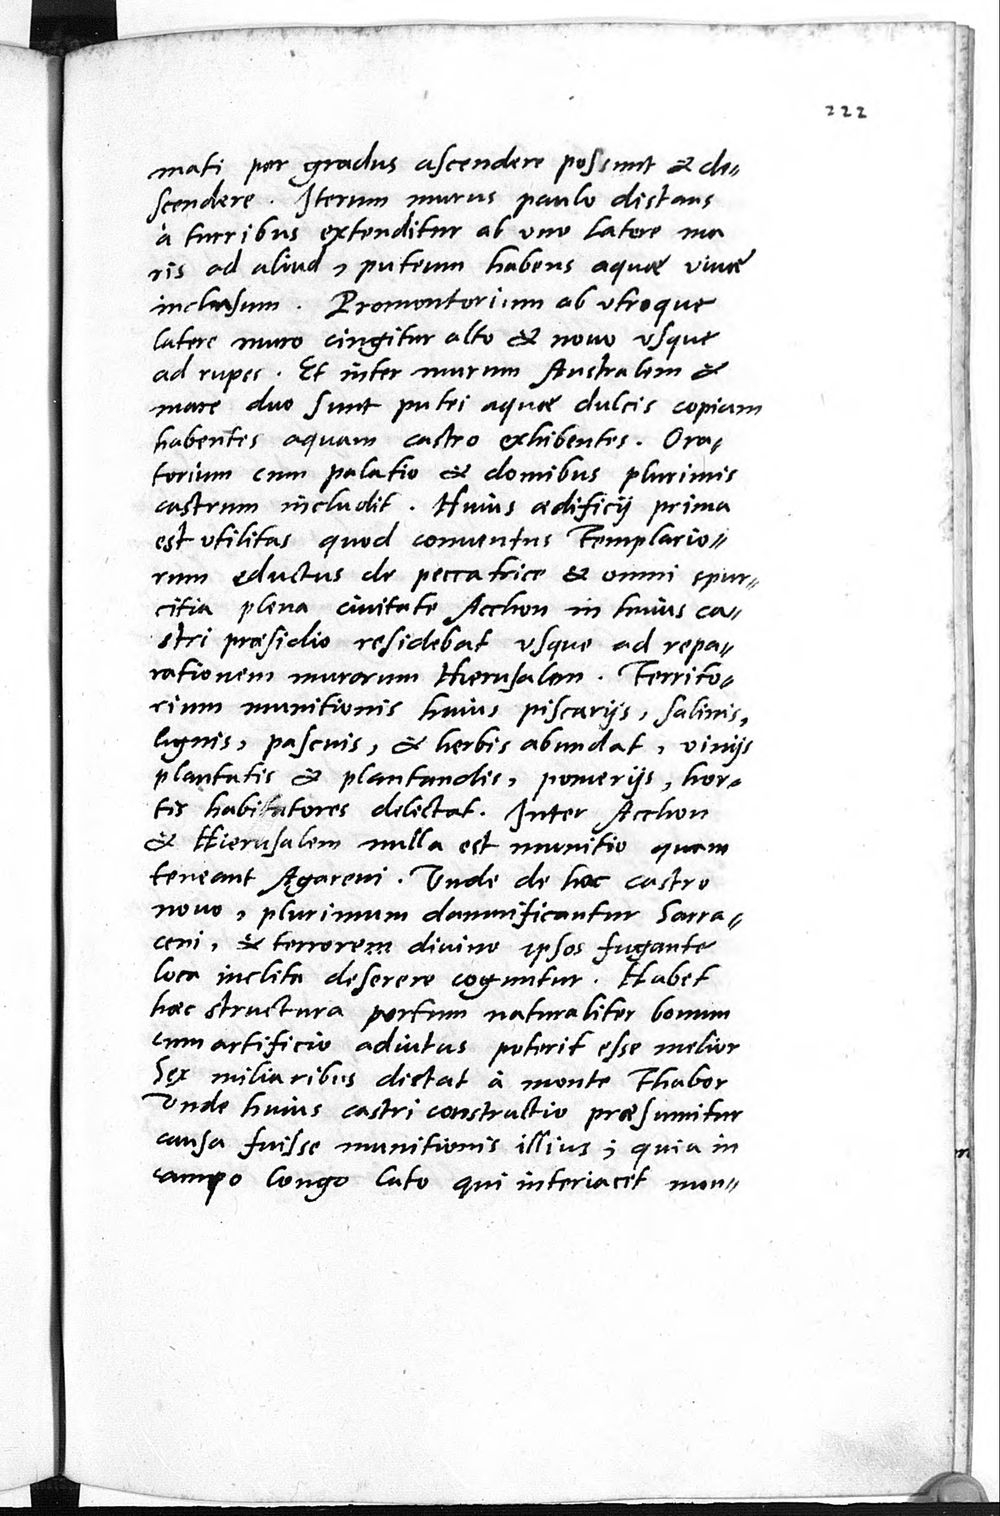 222
mati per gradus ascendere possunt & de„
scendere . Iterum murus paulo distans
à turribus extenditur ab vno latere ma
ris ad aliud, puteum habens aquæ viuæ
inclusum . Promontorium ab vtroque
latere muro cingitur alto & nouo vsque
ad rupes . Et inter murum Australem &
mare duo sunt putei aquæ dulcis copiam
habentes aquam castro exhibentes. Ora„
torium cum palatio & domibus plurimis
castrum includit . Huius ædificij prima
est vtilitas quod conuentus Templario„
rum eductus de peccatrice & omni spur„
citia plena ciuitate Acchon in huius ca„
stri præsidio residebat vsque ad repa„
rationem murorum Hierusalem . Territo„
rium munitionis huius piscarijs, salinis,
lignis, pascuis, & herbis abundat, vinijs
plantatis & plantandis, pomerijs, hor„
tis habitatores delectat. Inter Acchon
& Hierusalem nulla est munitio quam
teneant Agareni . Vnde de hoc castro
nouo, plurimum damnificantur Sarra„
ceni, & terrorem diuino ipsos fugante
loca inclita deserere coguntur . Habet
hæc structura portum naturaliter bonum
cum artificio adiutus poterit esse melior
Sex miliaribus distat à monte Thabor
Vnde huius castri constructio præsumitur
causa fuisse munitionis illius ; quia in
campo longo lato qui interiacet mon„